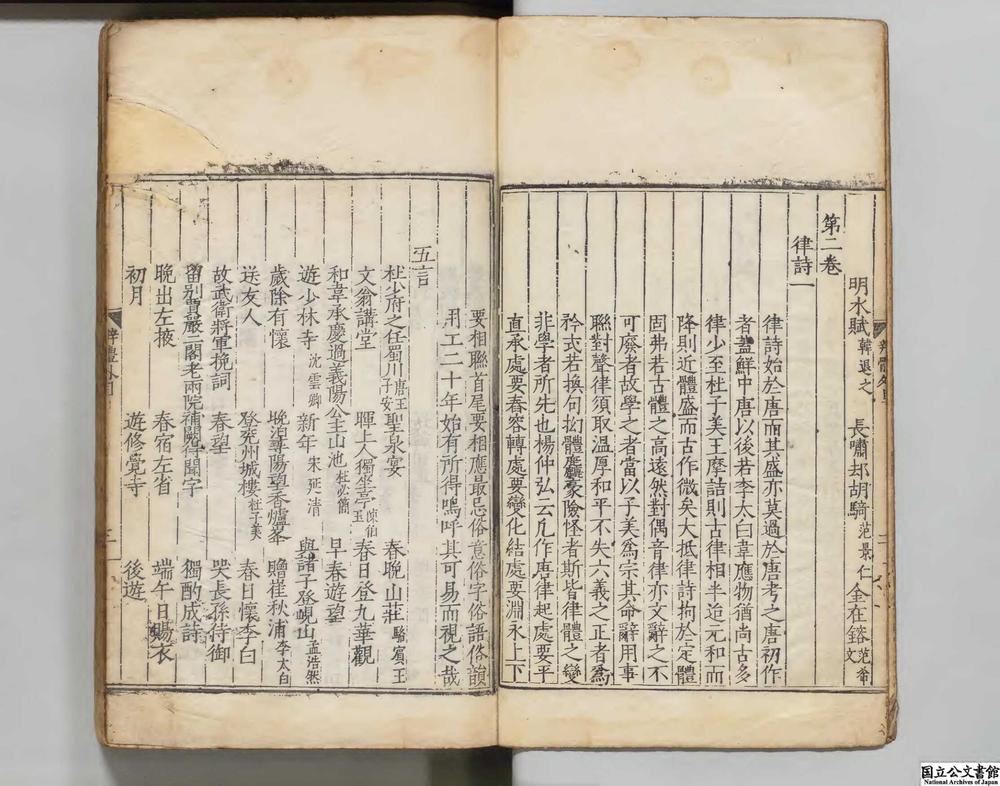 明水賦 韓退之 長嘯却胡騎 范景仁 金在鎔 范希文
第二卷
律詩一
律詩始於唐而其盛亦莫過於唐考之唐初作
者蓋鮮中唐以後若李太白韋應物猶尚古多
律少至杜子美王摩詰則古律相半迨元和而
降則近體盛而古作微矣大抵律詩拘於定體
固弗若古體之高遠然對偶音律亦文辭之不
可廢者故學之者當以子美爲宗其命辭用事
聯對聲律須取温厚和平不失六義之正者爲
矜式若換句拗體麤豪險怪者斯皆律體之變
非學者所先也楊仲弘云凡作唐律起處要平
直承處要舂容轉處要變化結處要淵永上下
要相聯首尾要相應最忌俗意俗字俗語俗韻
用工二十年始有所得嗚呼其可易而視之哉
五言
杜少府之任蜀川 唐王子安 聖泉宴 春晚山莊 駱賓王
文翁講堂 暉上人獨坐亭 陳伯玉 春日登九華觀
和韋承慶過義陽公主山池 杜必簡 早春遊望
遊少林寺 沈雲卿 新年 宋延清 與諸子登峴山 孟浩然
歲除有懷 晚泊潯陽望香爐峯 贈崔秋浦 李太白
送友人 登兖州城樓 杜子美 春日懷李白
故武衛將軍挽詞 春望 哭長孫侍御
留別賈嚴二閣老兩院補闕得聞字 獨酌成詩
晚出左掖 春宿左省 端午日賜衣
初月 遊修覺寺 後遊
国立公文書館
National Archives of Japan